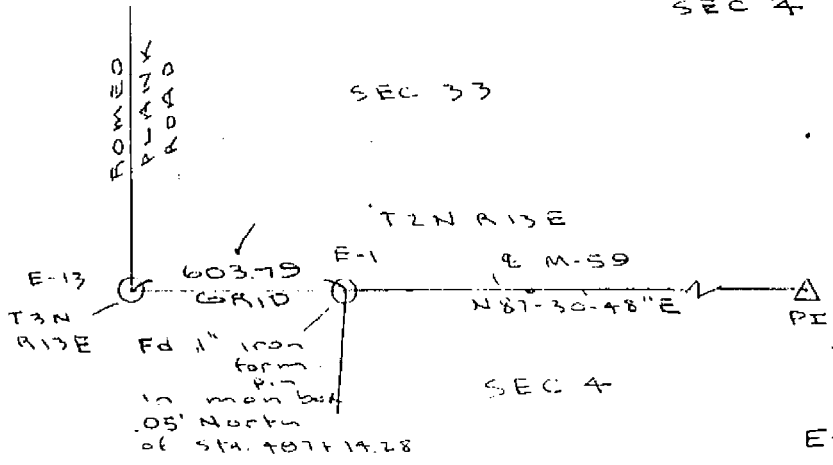 SEC 4
ROMEO
PLANK
ROAD
SEC 33
T2N R13E
E-13
603.79
GRID
E-1
℄ M-59
N 87-30-48"E
PI
T3N
R13E
Fd 1" iron
form
pin
in mon box
.05' North
of Sta. 407+14.28
SEC 4
E-